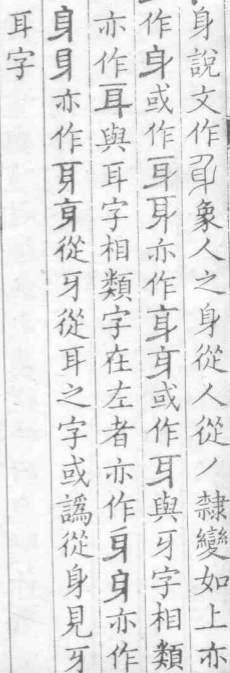 身說文作𨈑象人之身從人從丿隸變如上亦
作身或作耳耳亦作身身或作耳與牙字相類
亦作耳與耳字相類字在左者亦作身身亦作
身身亦作身身從牙從耳之字或譌從身見牙
耳字